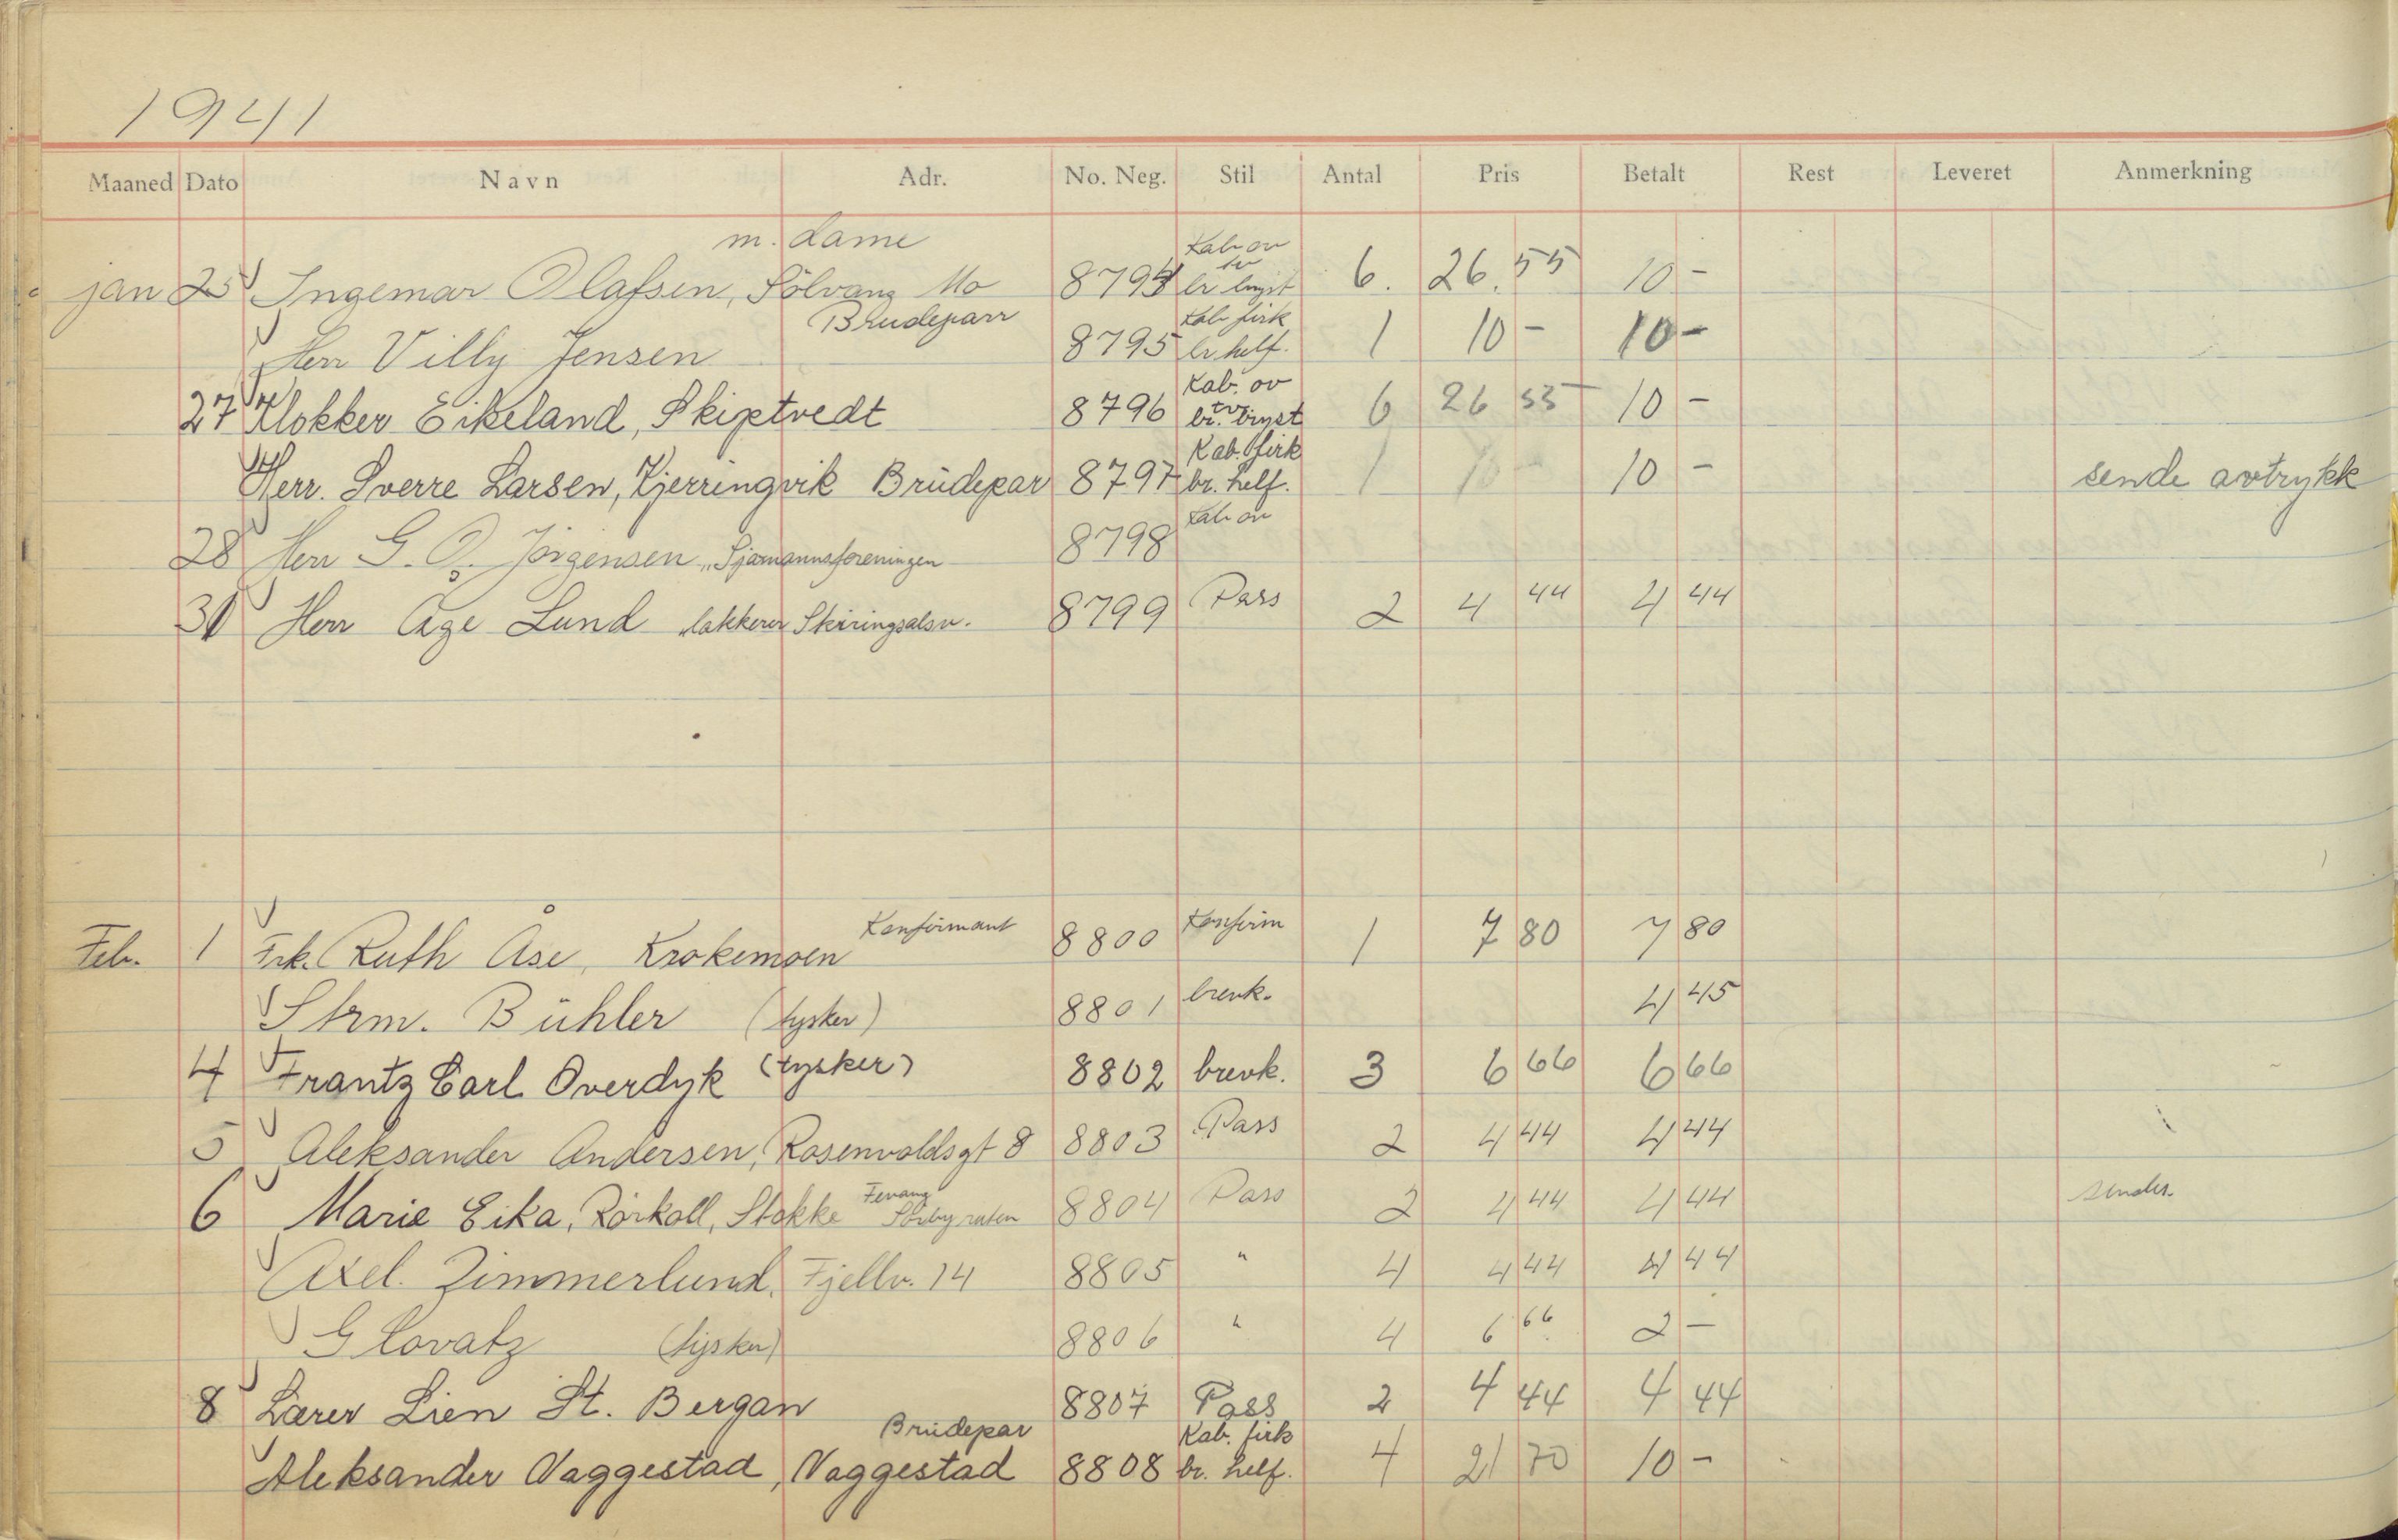 1941
Maaned Dato Navn Adr. No. Neg. Stil Antal Pris Betalt Rest Leveret Anmerkning
m. dame Kab ov
jan 25 Ingemar Olafsen, Sölvang Mo 8794 br bryst 6. 26.55 10 -
Brudeparr Kab firk
Herr Villy Jensen 8795 br helf. 1 10 - 10 -
Kab. ov
27 Klokker Eikeland, Skiptvedt 8796 br. bryst 6 26 55 10 -
Kab. firk
Herr. Sverre Larsen, Kjerringvik Brüdepar 8797 br. helf. 1 10 - 10 - sende avtrykk
Kab ov
28 Herr G. O. Jörgensen, Sjømannsforeningen 8798
Herr Åge Lund lakkerer Skiringsalsv. 8799 Pass 2 4 44 4 44
Konfirmant Konfirm
Feb. 1 Frk. Ruth Åse, Krokemoen 8800 1 7 80 7 80
Strm. Bühler (tysker) 8801 brevk. 4 45
4 Frantz Carl Overdyk (tysker) 8802 brevk. 3 6 66 6 66
5 Aleksander Andersen, Rosenvoldsgt 8 8803 Pass 2 4 44 4 44
6 Marie Eika, Rörkoll, Stokke Fevang Sörbyruten 8804 Pass 2 4 44 4 44 sendes.
Axel. Zimmerlund, Fjellv. 14 8805 " 4 4 44 4 44
G Lovatz (tysker) 8806 " 4 6 66 2 -
8 Lærer Lien St. Bergan 8807 Pass 2 4 44 4 44
Brüdepar Kab. firk
Aleksander Vaggestad, Vaggestad 8808 br. helf. 4 21 70 10 -